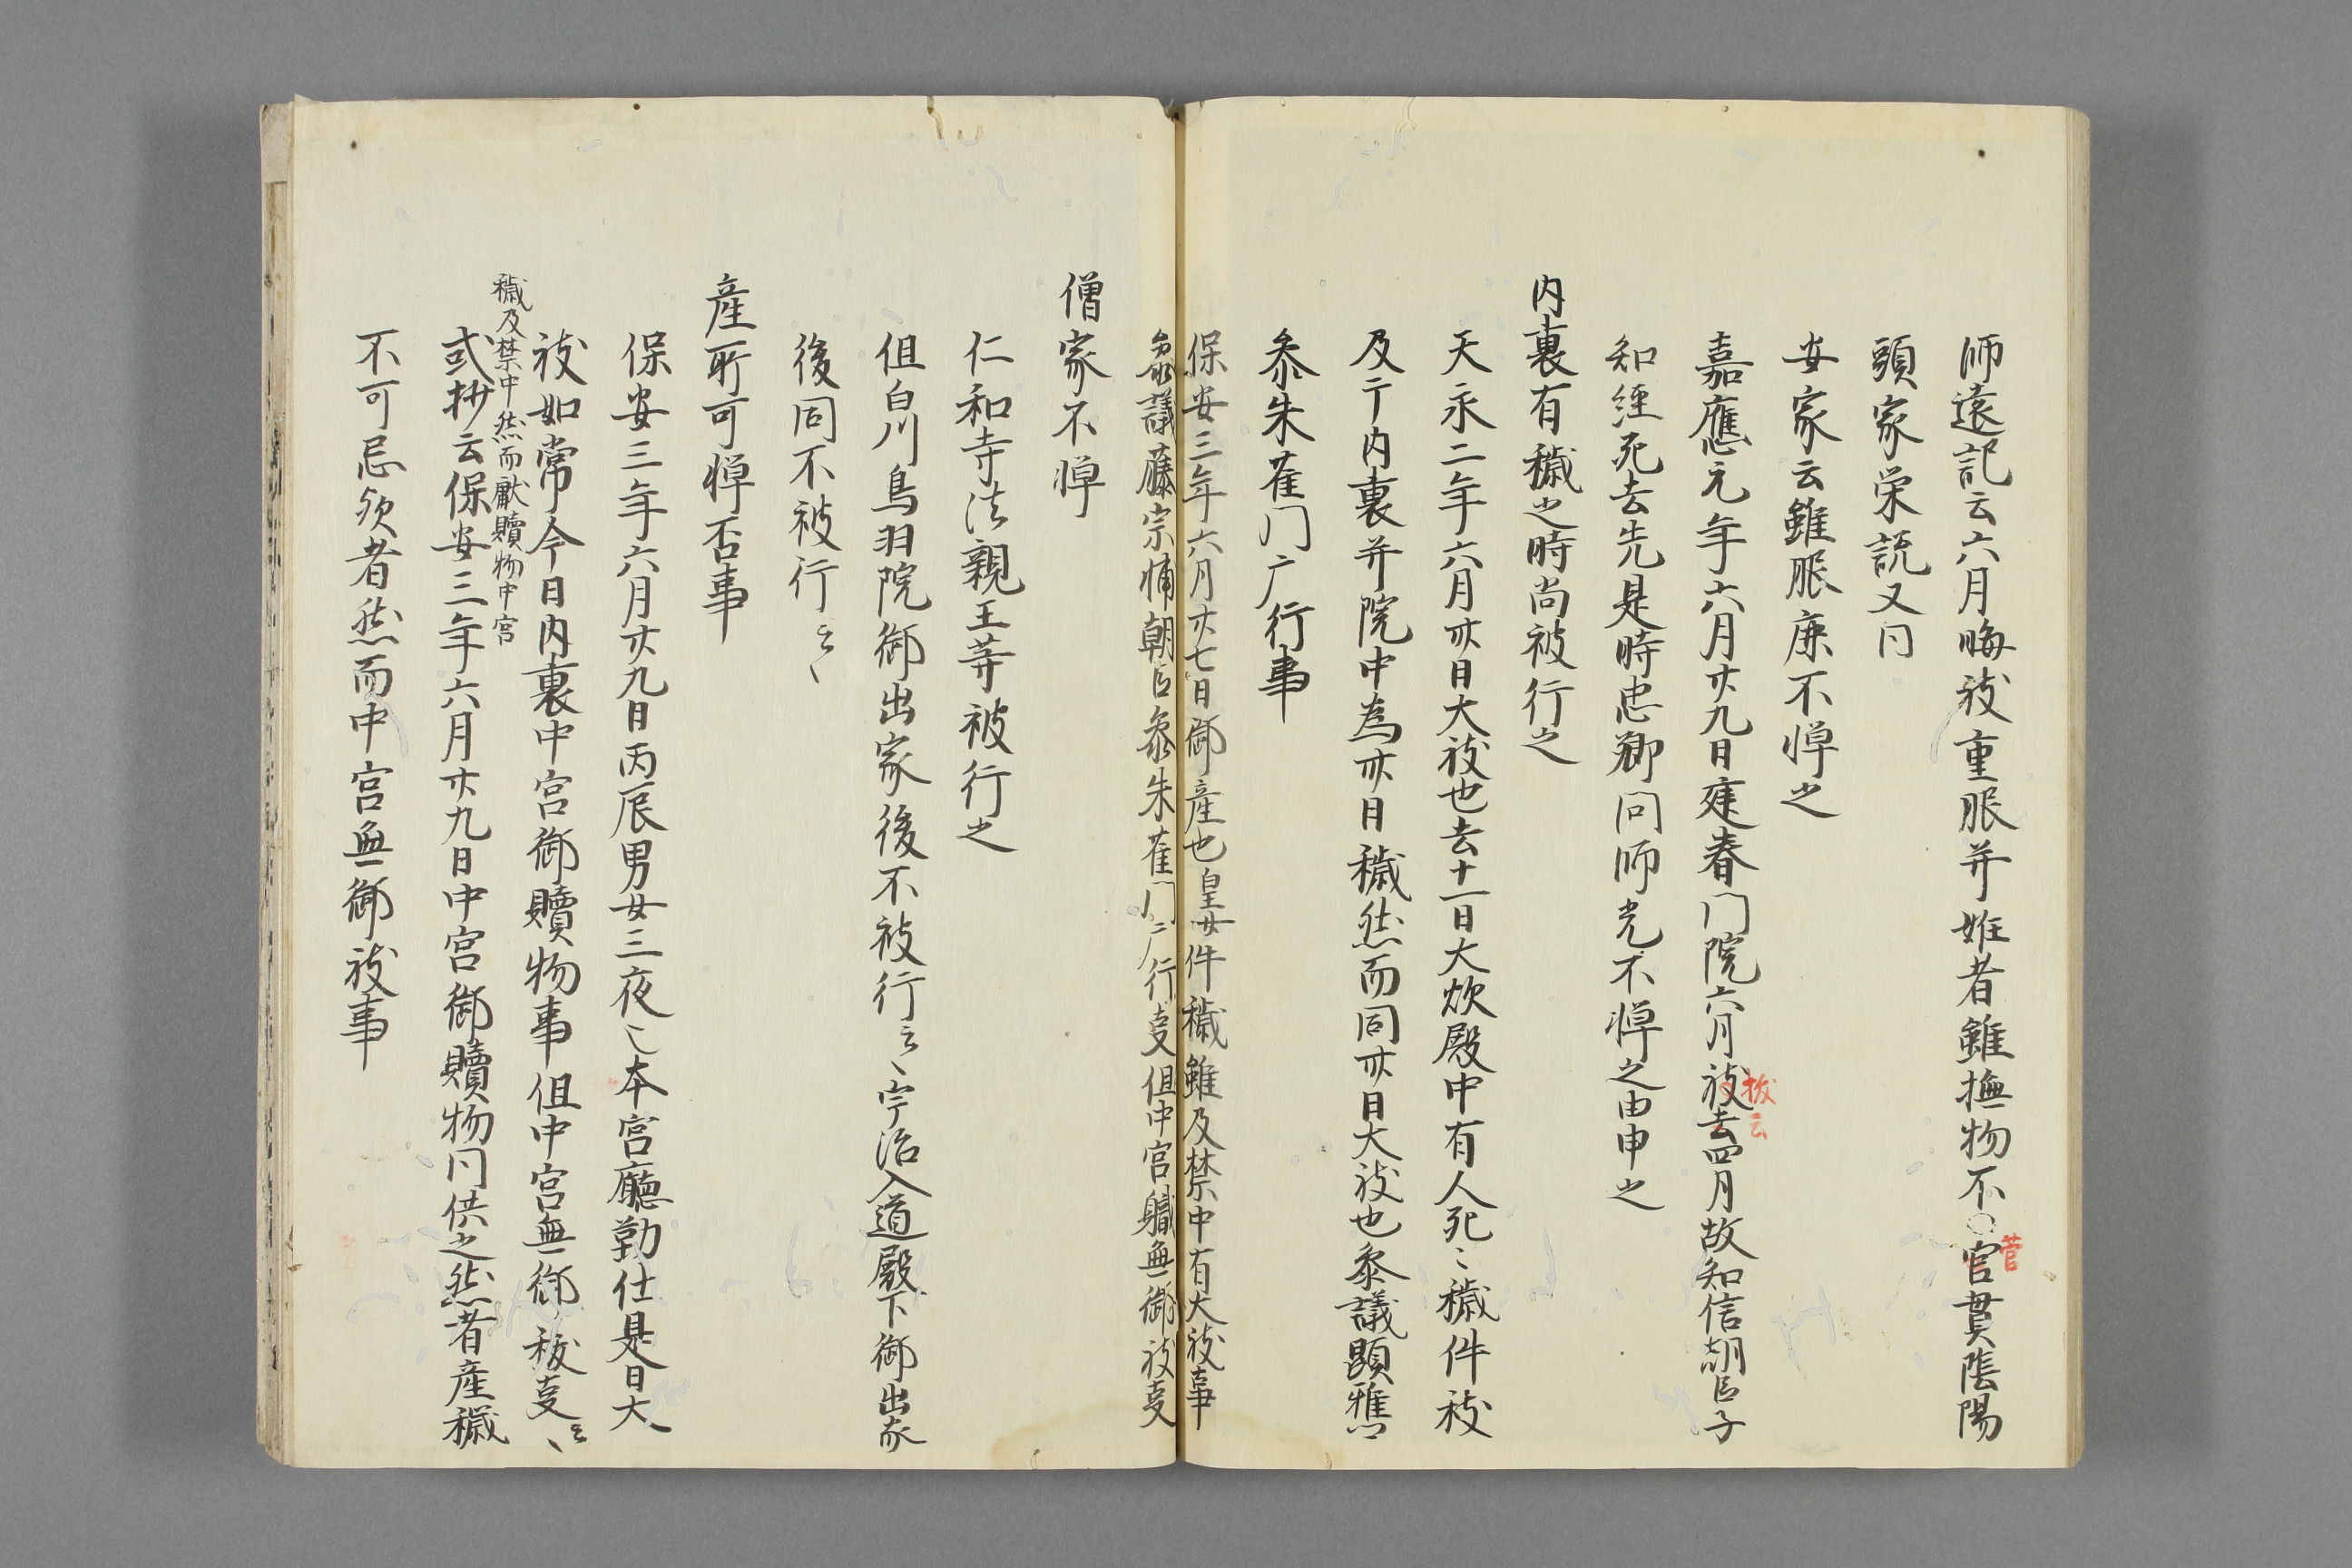 師遠記云六月晦祓重服并姙者雖撫物不○官貫陰陽
菅
頭家栄説又同
安家云雖服庶不憚之
嘉應元年六月廿九日建春門院六月祓去四月故知信朝臣子
拔云
知経死去先是時忠卿問師光不憚之由申之
内裏有穢之時尚被行之
天永二年六月卅日大祓也去十一日大炊殿中有人死〻穢件祓
及于内裏并院中為卅日穢然而同卅日大祓也参議顕雅
参朱雀門广行事
保安三年六月廿七日御産也皇女件穢雖及禁中有大祓事
参議藤宗輔朝臣参朱雀門〻广行事但中宮職無御祓事
僧家不憚
仁和寺法親王等被行之
但白川鳥羽院御出家後不被行云〻宇治入道殿下御出家
後同不被行云〻
産所可憚否事
保安三年六月廿九日丙辰男女三夜〻本宮廳勤仕是日大
祓如常今日内裏中宮御贖物事但中宮無御祓事云〻
穢及禁中然而献贖物中宮
或抄云保安三年六月廿九日中宮御贖物同供之然者産穢
不可忌須者然而中宮無御祓事